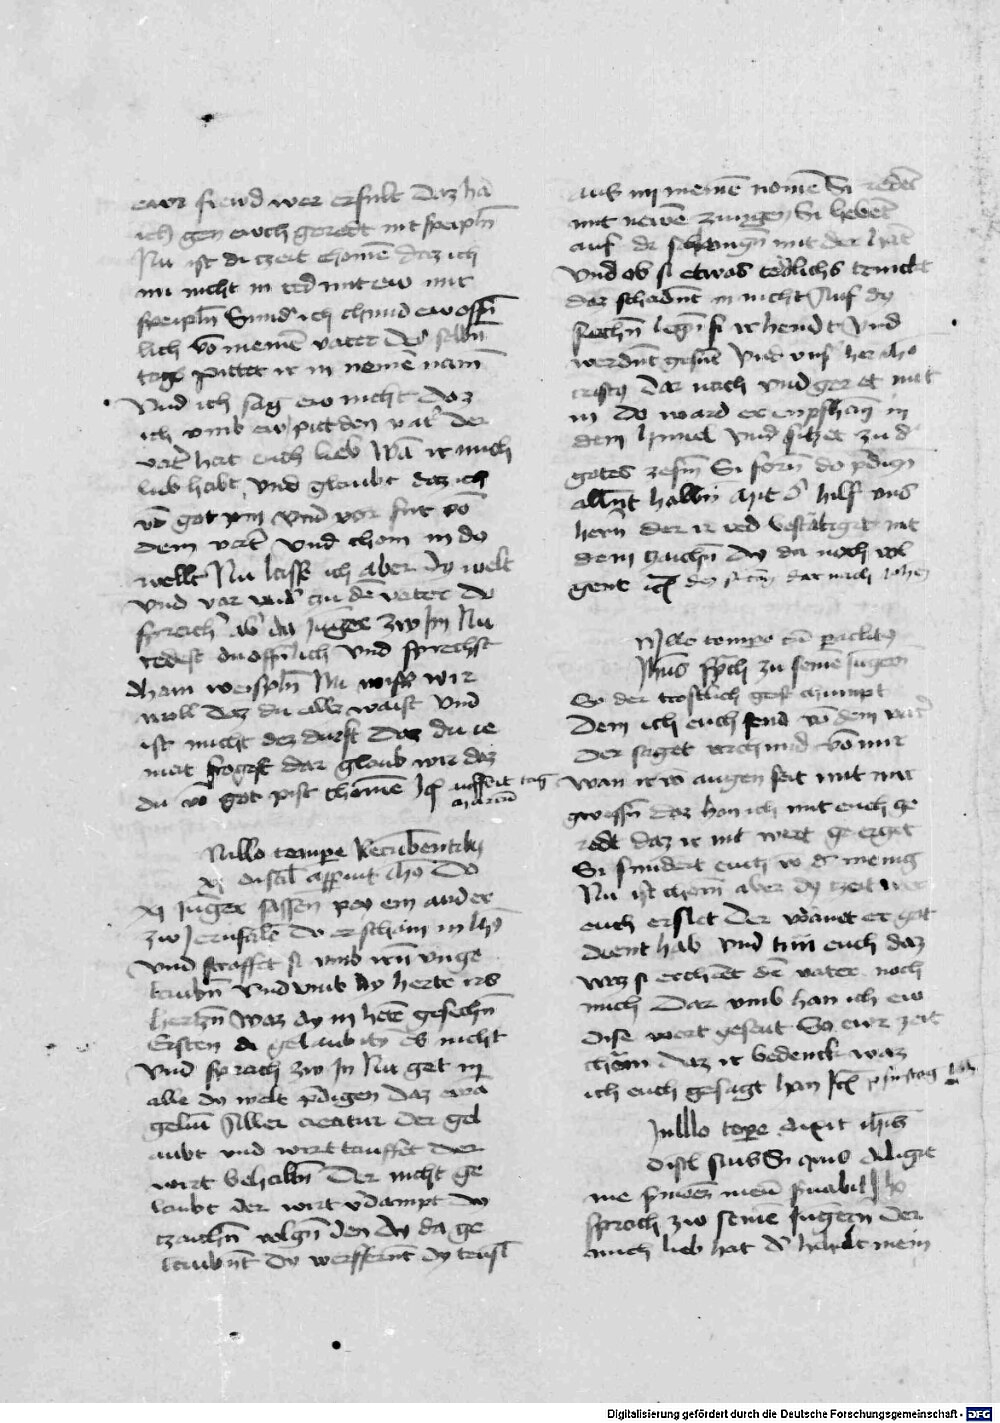 ewr freud wer erfult Daz hā
ich gen ewch geredt mit peispiln̄
Nu ist di czeit chomē daz ich
nu nicht in red mit ew mit
speipln̄ Sund' ich chund ew offn̄
lich vō meinē vater Des selbn̄
tags pittet ir in meinē nam̄
Vnd ich sag ew nicht daz
ich vmb ew pitt den vat' der
vat' hat euch lieb Wā ir mich
lieb habt vnd glaubt daz ich
vō got pin Vnd vor fur vō
dem vat' Vnd chom in do
wellt Nu lasse ich aber dy welt
Vnd var wid' czu dē vater Do
sprach' ab' di Juger zw Im Nu
redest du offn̄lich vnd sprechst
cham peispiln̄ Nu wiss wir
woll daz du alls waist Vnd
ist nicht dez durft daz du ie
māt fragest dar glaub wir daz
du vō got pist chomē
auffert tag
In illo tempore Recūbentibȝ
xj discil' apparuit ihc̄ Do
xj Juger sassen pey ein ander
zw Jerusalē do erscham in Ihc̄
vnd straffet si vmb irn̄ vnge
laubn̄ Vnd vmb dy herte irs
hertzn̄ Waz dy in hetē gesechn̄
Ersten di gelaubitn̄ es nicht
Vnd sprach zw In Nu get in
alle dy welt p̄digen daz ewā
geliū Aller creatur der gel
aubt vnd wirt tauffet der
wirt behaltn̄ Der nicht ge
laubt der wirt v'dampt Dy
tzaichn̄ volgn̄ den dy da ge
laubn̄t Dy werffent dy teufl
aus in meinē nomē Si redēt
mit newē zungen Si hebēt
auf di schlangn̄ mit der hāt
Vnd ob si etwas tödlichs trinckt
daz schadn̄t in nicht Auf dy
siechn̄ legn̄ si ir hend Vnd
werdn̄t gesūt Vnd vnser her ihc̄
cristȝ Dar nach vnd ger et mit
in Do ward er enpfhāgn̄ in
dem himel Vnd sitzet zu d'
gotes zesm̄ Si forn̄ do p̄dign̄
allnt halbn̄ Mit d' hilf vns
hern̄ der ir red bestätiget mit
dem zaichn̄ dy da noch vol
gent
In illo tempore cū paclitȝ
Jhūs sp̄ch zu seinē Jugern̄
So der trostlich geist chumpt
Dem ich euch send vō dem vat'
Der saget euch vnd vō mir
wan ir vō angen seit mit mir
gwessn̄ daz han ich mit euch ge
redt daz ir nit wert geerget
Si sundert euch vō d' menig
Nu ist chom̄ aber dy czeit wer
euch erslet der wānt er got
dient hab Vnd tun euch daz
Waz si erchēt dē vater noch
mich Dar vmb han ich ew
dise wort geseit So ewr zeit
chōm daz ir bedenck waz
ich euch gesagt han
In illo tpe dixit ihūs
discl' suis Si quis diligit
me smonē meū seruabit Ihc̄
sprach zw seinē Jugern Der
mich lieb hat d' haldt mein